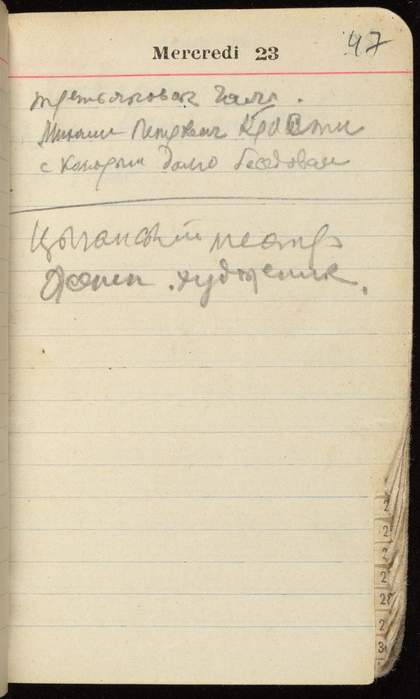 Mercredi 23
47
третьяковск галл.
Михаил Петрович Кристи
с которым долго беседовал
Цыганский театр
художник.
2
2
2
2
28
2
3